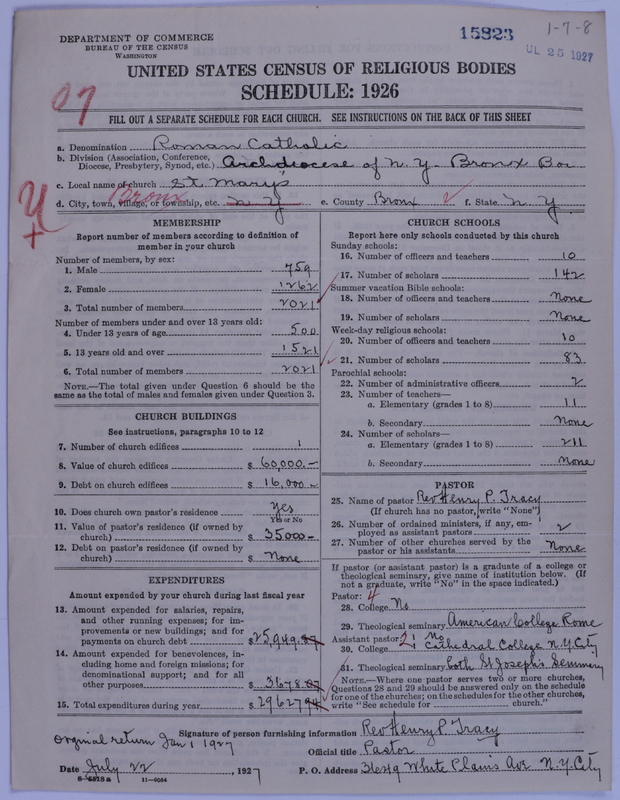 DEPARTMENT OF COMMERCE
BUREAU OF THE CENSUS
WASHINGTON
15823
1-7-8
UL 25 1927
UNITED STATES CENSUS OF RELIGIOUS BODIES
SCHEDULE: 1926
FILL OUT A SEPARATE SCHEDULE FOR EACH CHURCH. SEE INSTRUCTIONS ON THE BACK OF THIS SHEET
a. Denomination Roman Catholic
b. Division (Association, Conference, Diocese, Presbytery, Synod, etc.) Archdiocese of N. Y. Bronx Bor
c. Local name of church St. Mary's
d. City, town, village, or township, etc. Bronx N Y e. County Bronx f. State N. Y.
MEMBERSHIP
Report number of members according to definition of
member in your church
Number of members, by sex:
1. Male 759
2. Female 1262
3. Total number of members 2021
Number of members under and over 13 years old:
4. Under 13 years of age 500
5. 13 years old and over 1521
6. Total number of members 2021
NOTE.—The total given under Question 6 should be
same as the total of males and females given under Question 3.
CHURCH BUILDINGS
See instructions, paragraphs 10 to 12
7. Number of church edifices 1
8. Value of church edifices $ 60,000.—
9. Debt on church edifices $ 16,000.—
10. Does church own pastor's residence Yes
Yes or No
11. Value of pastor's residence (if owned by
church) $ 35000—
12. Debt on pastor's residence (if owned by
church) $ None
EXPENDITURES
Amount expended by your church during last fiscal year
13. Amount expended for salaries, repairs,
and other running expenses; for im-
provements or new buildings; and for
payments on church debt $ 25,949.87
14. Amount expended for benevolences, in-
cluding home and foreign missions; for
denominational support; and for all
other purposes $ 3678.07
15. Total expenditures during year $ 29627 94
CHURCH SCHOOLS
Report here only schools conducted by this church
Sunday schools:
16. Number of officers and teachers 10
17. Number of scholars 142
Summer vacation Bible schools:
18. Number of officers and teachers None
19. Number of scholars None
Week-day religious schools:
20. Number of officers and teachers 10
21. Number of scholars 83
Parochial schools:
22. Number of administrative officers 2
23. Number of teachers—
a. Elementary (grades 1 to 8) 11
b. Secondary None
24. Number of scholars—
a. Elementary (grades 1 to 8) 211
b. Secondary None
PASTOR
25. Name of pastor Rev Henry P. Tracy
(If church has no pastor, write "None")
26. Number of ordained ministers, if any, em-
ployed as assistant pastors 2
27. Number of other churches served by the
pastor or his assistants None
If pastor (or assistant pastor) is a graduate of a college or
theological seminary, give name of institution below. (If
not a graduate, write "No" in the space indicated.)
Pastor: 4
28. College No
29. Theological seminary American College Rome
Assistant pastor: 2 1 No
30. College Cathedral College N.Y. City
31. Theological seminary both St Joseph's Seminary
NOTE.—Where one pastor serves two or more churches,
Questions 28 and 29 should be answered only on the schedule
for one of the churches; on the schedules for the other churches,
write "See schedule for church."
Signature of person furnishing information Rev Henry P. Tracy
orginal return Jan 1 1927
Official title Pastor
Date July 22, 1927 P. O. Address 3649 White Plains Ave N.Y. City
11—9064